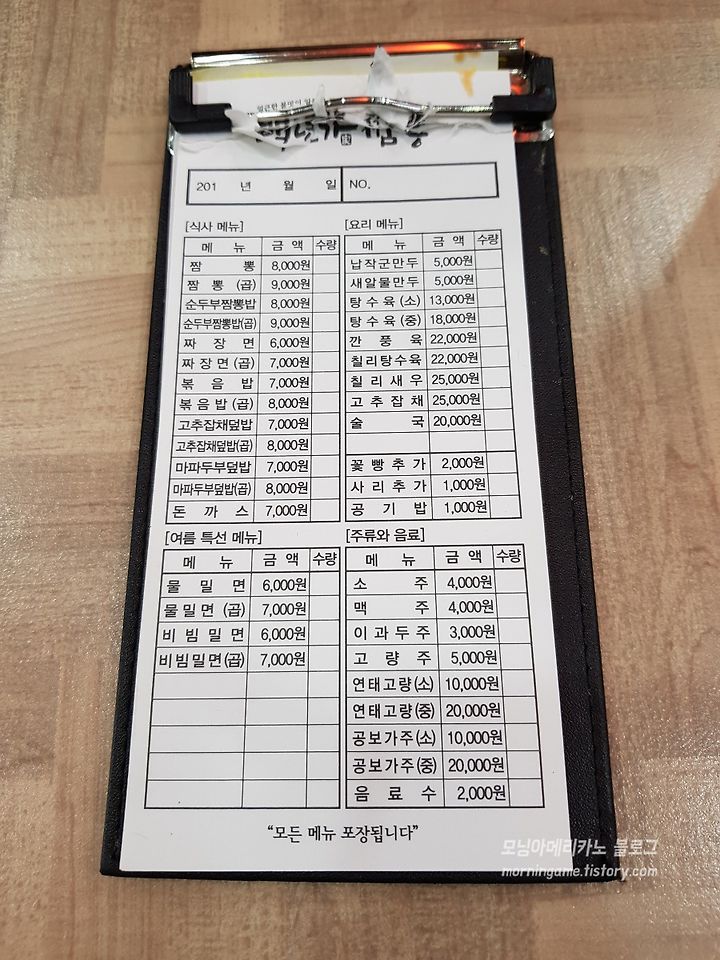 201 년 월 일 NO.
[식사 메뉴]
메 뉴 금 액 수량
짬 뽕 8,000원
짬 뽕 (곱) 9,000원
순두부짬뽕밥 8,000원
순두부짬뽕밥(곱) 9,000원
짜 장 면 6,000원
짜 장 면 (곱) 7,000원
볶 음 밥 7,000원
볶 음 밥 (곱) 8,000원
고추잡채덮밥 7,000원
고추잡채덮밥(곱) 8,000원
마파두부덮밥 7,000원
마파두부덮밥(곱) 8,000원
돈 까 스 7,000원
[요리 메뉴]
메 뉴 금 액 수량
납작군만두 5,000원
새알물만두 5,000원
탕 수 육 (소) 13,000원
탕 수 육 (중) 18,000원
깐 풍 육 22,000원
칠리탕수육 22,000원
칠 리 새 우 25,000원
고 추 잡 채 25,000원
술 국 20,000원
꽃 빵 추 가 2,000원
사 리 추 가 1,000원
공 기 밥 1,000원
[여름 특선 메뉴]
메 뉴 금 액 수량
물 밀 면 6,000원
물 밀 면 (곱) 7,000원
비 빔 밀 면 6,000원
비 빔 밀 면 (곱) 7,000원
[주류와 음료]
메 뉴 금 액 수량
소 주 4,000원
맥 주 4,000원
이 과 두 주 3,000원
고 량 주 5,000원
연태고량(소) 10,000원
연태고량(중) 20,000원
공보가주(소) 10,000원
공보가주(중) 20,000원
음 료 수 2,000원
“모든 메뉴 포장됩니다”
모닝아메리카노 블로그
morningame.tistory.com